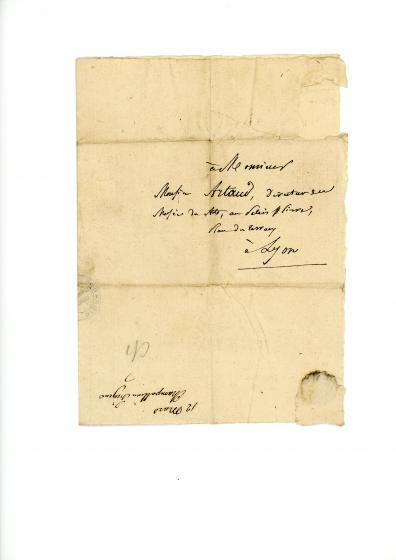 à Monsieur
Monsieur Artaud, directeur du
Musée des Arts, au Palais St Pierre,
à Lyon
12 Mars
Champollion Figeac